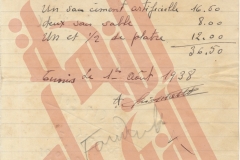 Un sac ciment artificielle 16.50
deux sans sable 8.00
Un et 1/2 de platre 12.00
36.50
Tunis Le 1er Août 1938